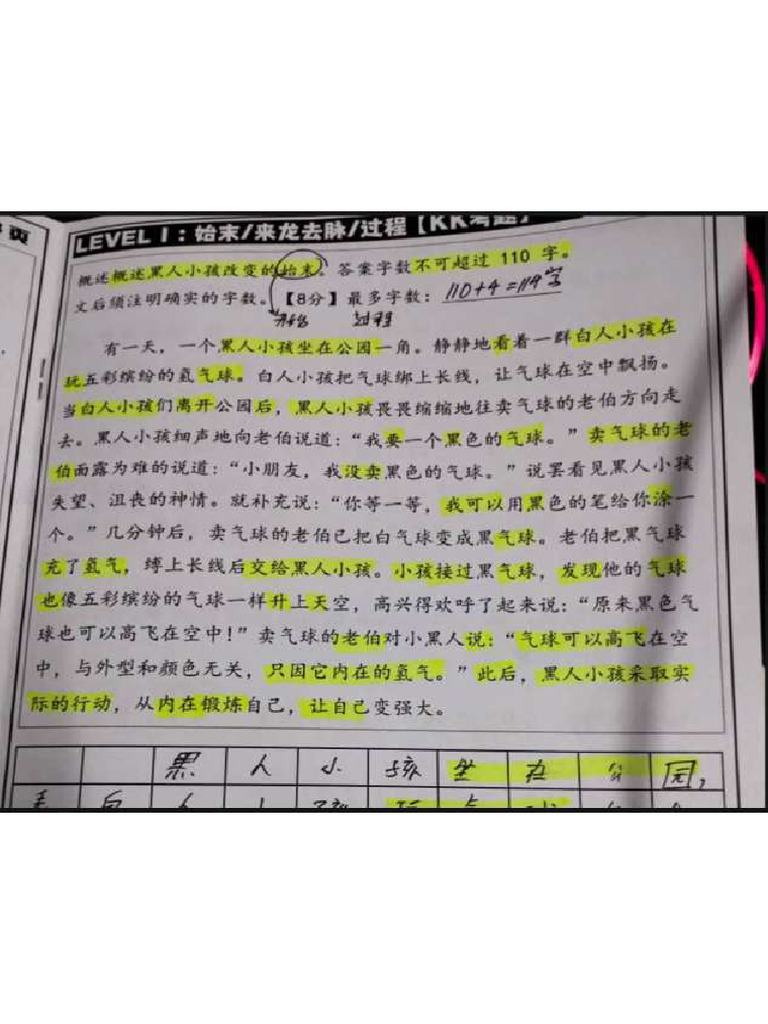 页
LEVEL 1：始末/来龙去脉/过程【KK考题】
概述概述黑人小孩改变的始末。答案字数不可超过 110 字。
文后须注明确实的字数。【8分】最多字数：110+4=114字
开始 过程
有一天，一个黑人小孩坐在公园一角。静静地看着一群白人小孩在
玩五彩缤纷的氢气球。白人小孩把气球绑上长线，让气球在空中飘扬。
当白人小孩们离开公园后，黑人小孩畏畏缩缩地往卖气球的老伯方向走
去。黑人小孩细声地向老伯说道：“我要一个黑色的气球。”卖气球的老
伯面露为难的说道：“小朋友，我没卖黑色的气球。”说罢看见黑人小孩
失望、沮丧的神情。就补充说：“你等一等，我可以用黑色的笔给你涂一
个。”几分钟后，卖气球的老伯已把白气球变成黑气球。老伯把黑气球
充了氢气，缚上长线后交给黑人小孩。小孩接过黑气球，发现他的气球
也像五彩缤纷的气球一样升上天空，高兴得欢呼了起来说：“原来黑色气
球也可以高飞在空中！”卖气球的老伯对小黑人说：“气球可以高飞在空
中，与外型和颜色无关，只因它内在的氢气。”此后，黑人小孩采取实
际的行动，从内在锻炼自己，让自己变强大。
黑人小孩坐在公园，